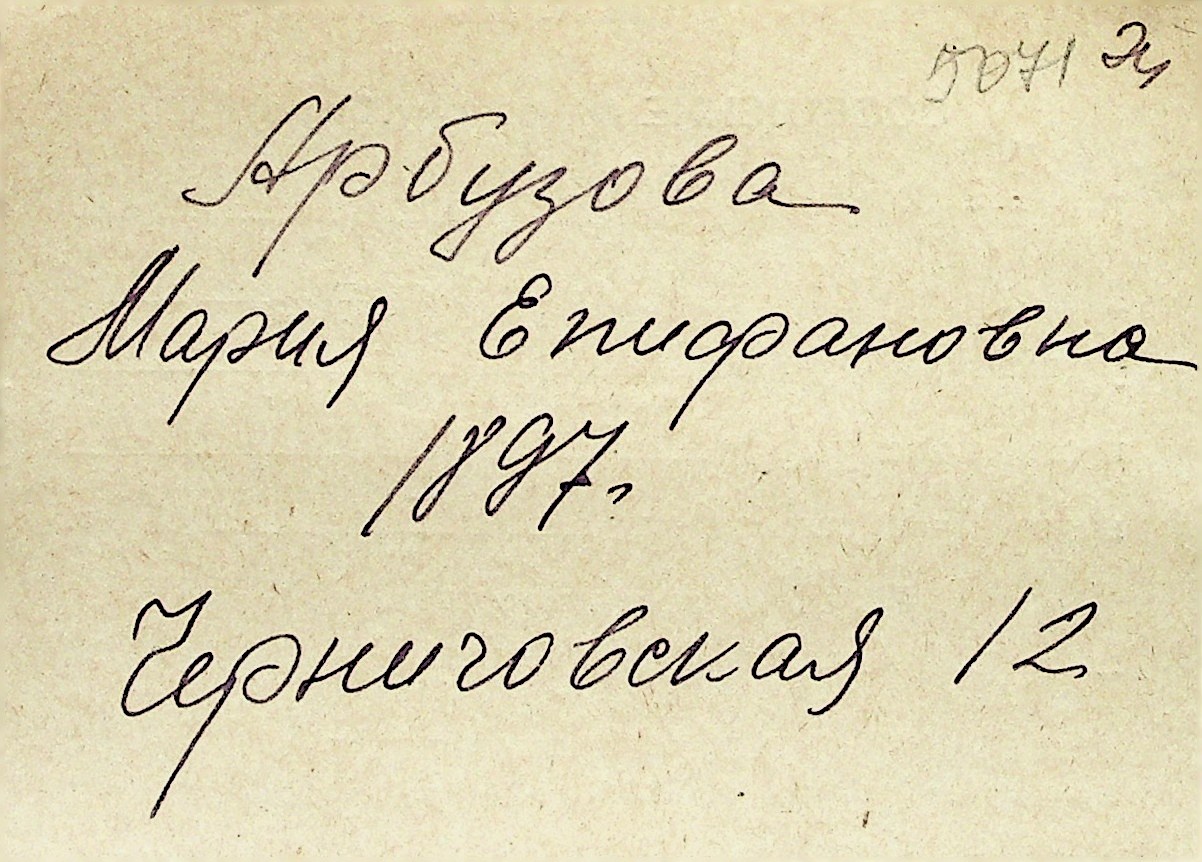 5071
Арбузова
Мария Епифановна
1897г.
Черниговская 12